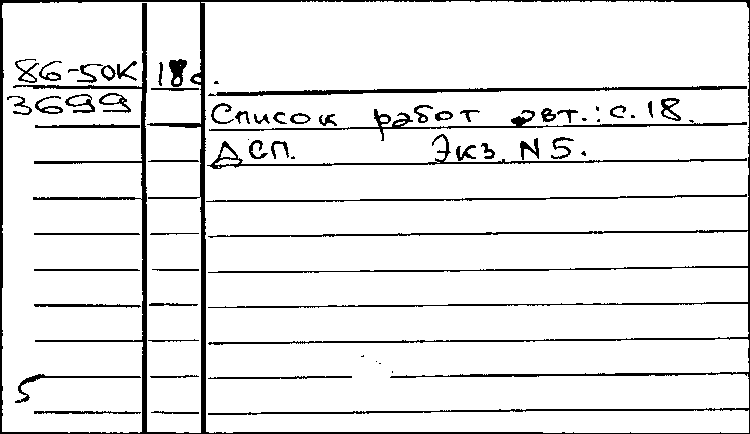 86-50к 18с.
3699
Список работ авт.: с. 18.
ДСП. Экз. N 5.
5